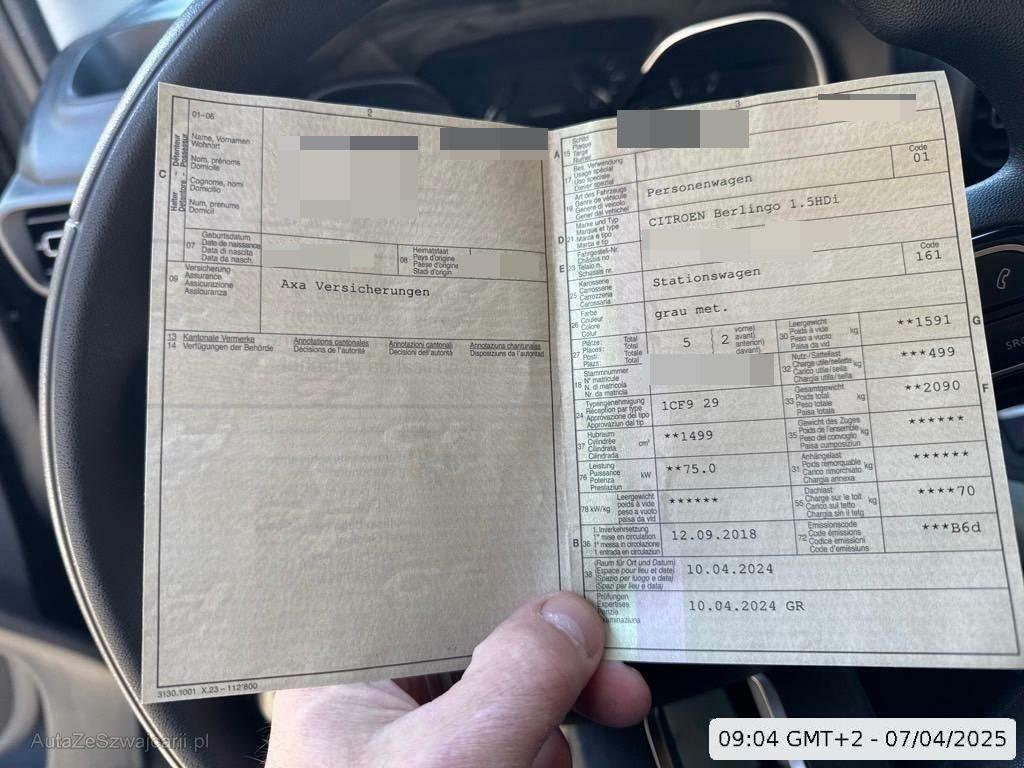 2
01-06
C
Halter Détenteur
Detentore Possessur
Name, Vornamen
Wohnort
Nom, prénoms
Domicile
Cognome, nomi
Domicilio
Num, prenums
Domicil
07
Geburtsdatum
Date de naissance
Data di nascita
Data da nasch.
08
Heimatstaat
Pays d'origine
Paese d'origine
Stadi d'origin
09
Versicherung
Assurance
Assicurazione
Assicuranza
Axa Versicherungen
13 Kantonale Vermerke Annotations cantonales Annotazioni cantonali Annotaziuns chantunalas
14 Verfügungen der Behörde Décisions de l'autorité Decisioni dell'autorità Disposiziuns da l'autoritad
3130.1001 X.23 – 112'800
3
A
15
Schild
Plaque
Targa
Numer
17
Bes. Verwendung
Usage spécial
Uso speciale
Diever spezial
19
Art des Fahrzeugs
Genre de véhicule
Genere di veicolo
Gener dal vehichel
Personenwagen
Code
01
D
21
Marke und Typ
Marque et type
Marca e tipo
Marca e tip
CITROEN Berlingo 1.5HDi
E
23
Fahrgestell-Nr.
Châssis no
Telaio n.
Schassis nr.
25
Karosserie
Carrosserie
Carrozzeria
Carossaria
Stationswagen
Code
161
26
Farbe
Couleur
Colore
Colur
grau met.
27
Plätze: Total
Places: Total
Posti: Totale
Plazs: Total
5
2
vorne)
avant)
anteriori)
davant)
30
Leergewicht
Poids à vide
Peso a vuoto
Paisa da vid
kg
**1591
G
18
Stammnummer
N° matricule
N. di matricola
Nr. da matricla
32
Nutz-/Sattellast
Charge utile/sellette
Carico utile/sella
Chargia utile/sella
kg
***499
24
Typengenehmigung
Réception par type
Approvazione del tipo
Approvaziun dal tip
1CF9 29
33
Gesamtgewicht
Poids total
Peso totale
Paisa totala
kg
**2090
F
37
Hubraum
Cylindrée
Cilindrata
Cilindrada
cm³
**1499
35
Gewicht des Zuges
Poids de l'ensemble
Peso del convoglio
Paisa cumposiziun
kg
******
76
Leistung
Puissance
Potenza
Prestaziun
kW
**75.0
31
Anhängelast
Poids remorquable
Carico rimorchiato
Chargia annexa
kg
******
78 kW/kg
Leergewicht
poids à vide
peso a vuoto
paisa da vid
******
55
Dachlast
Charge sur le toit
Carico sul tetto
Chargia sin il tetg
kg
****70
B
36
1. Inverkehrsetzung
1re mise en circulation
1a messa in circolazione
1. entrada en circulaziun
12.09.2018
72
Emissionscode
Code émissions
Codice emissioni
Code d'emissiuns
***B6d
38
(Raum für Ort und Datum)
(Espace pour lieu et date)
(Spazio per luogo e data)
(Spazi per lieu e data)
10.04.2024
Prüfungen
Expertises
10.04.2024 GR
AutaZeSzwajcarii.pl
09:04 GMT+2 - 07/04/2025